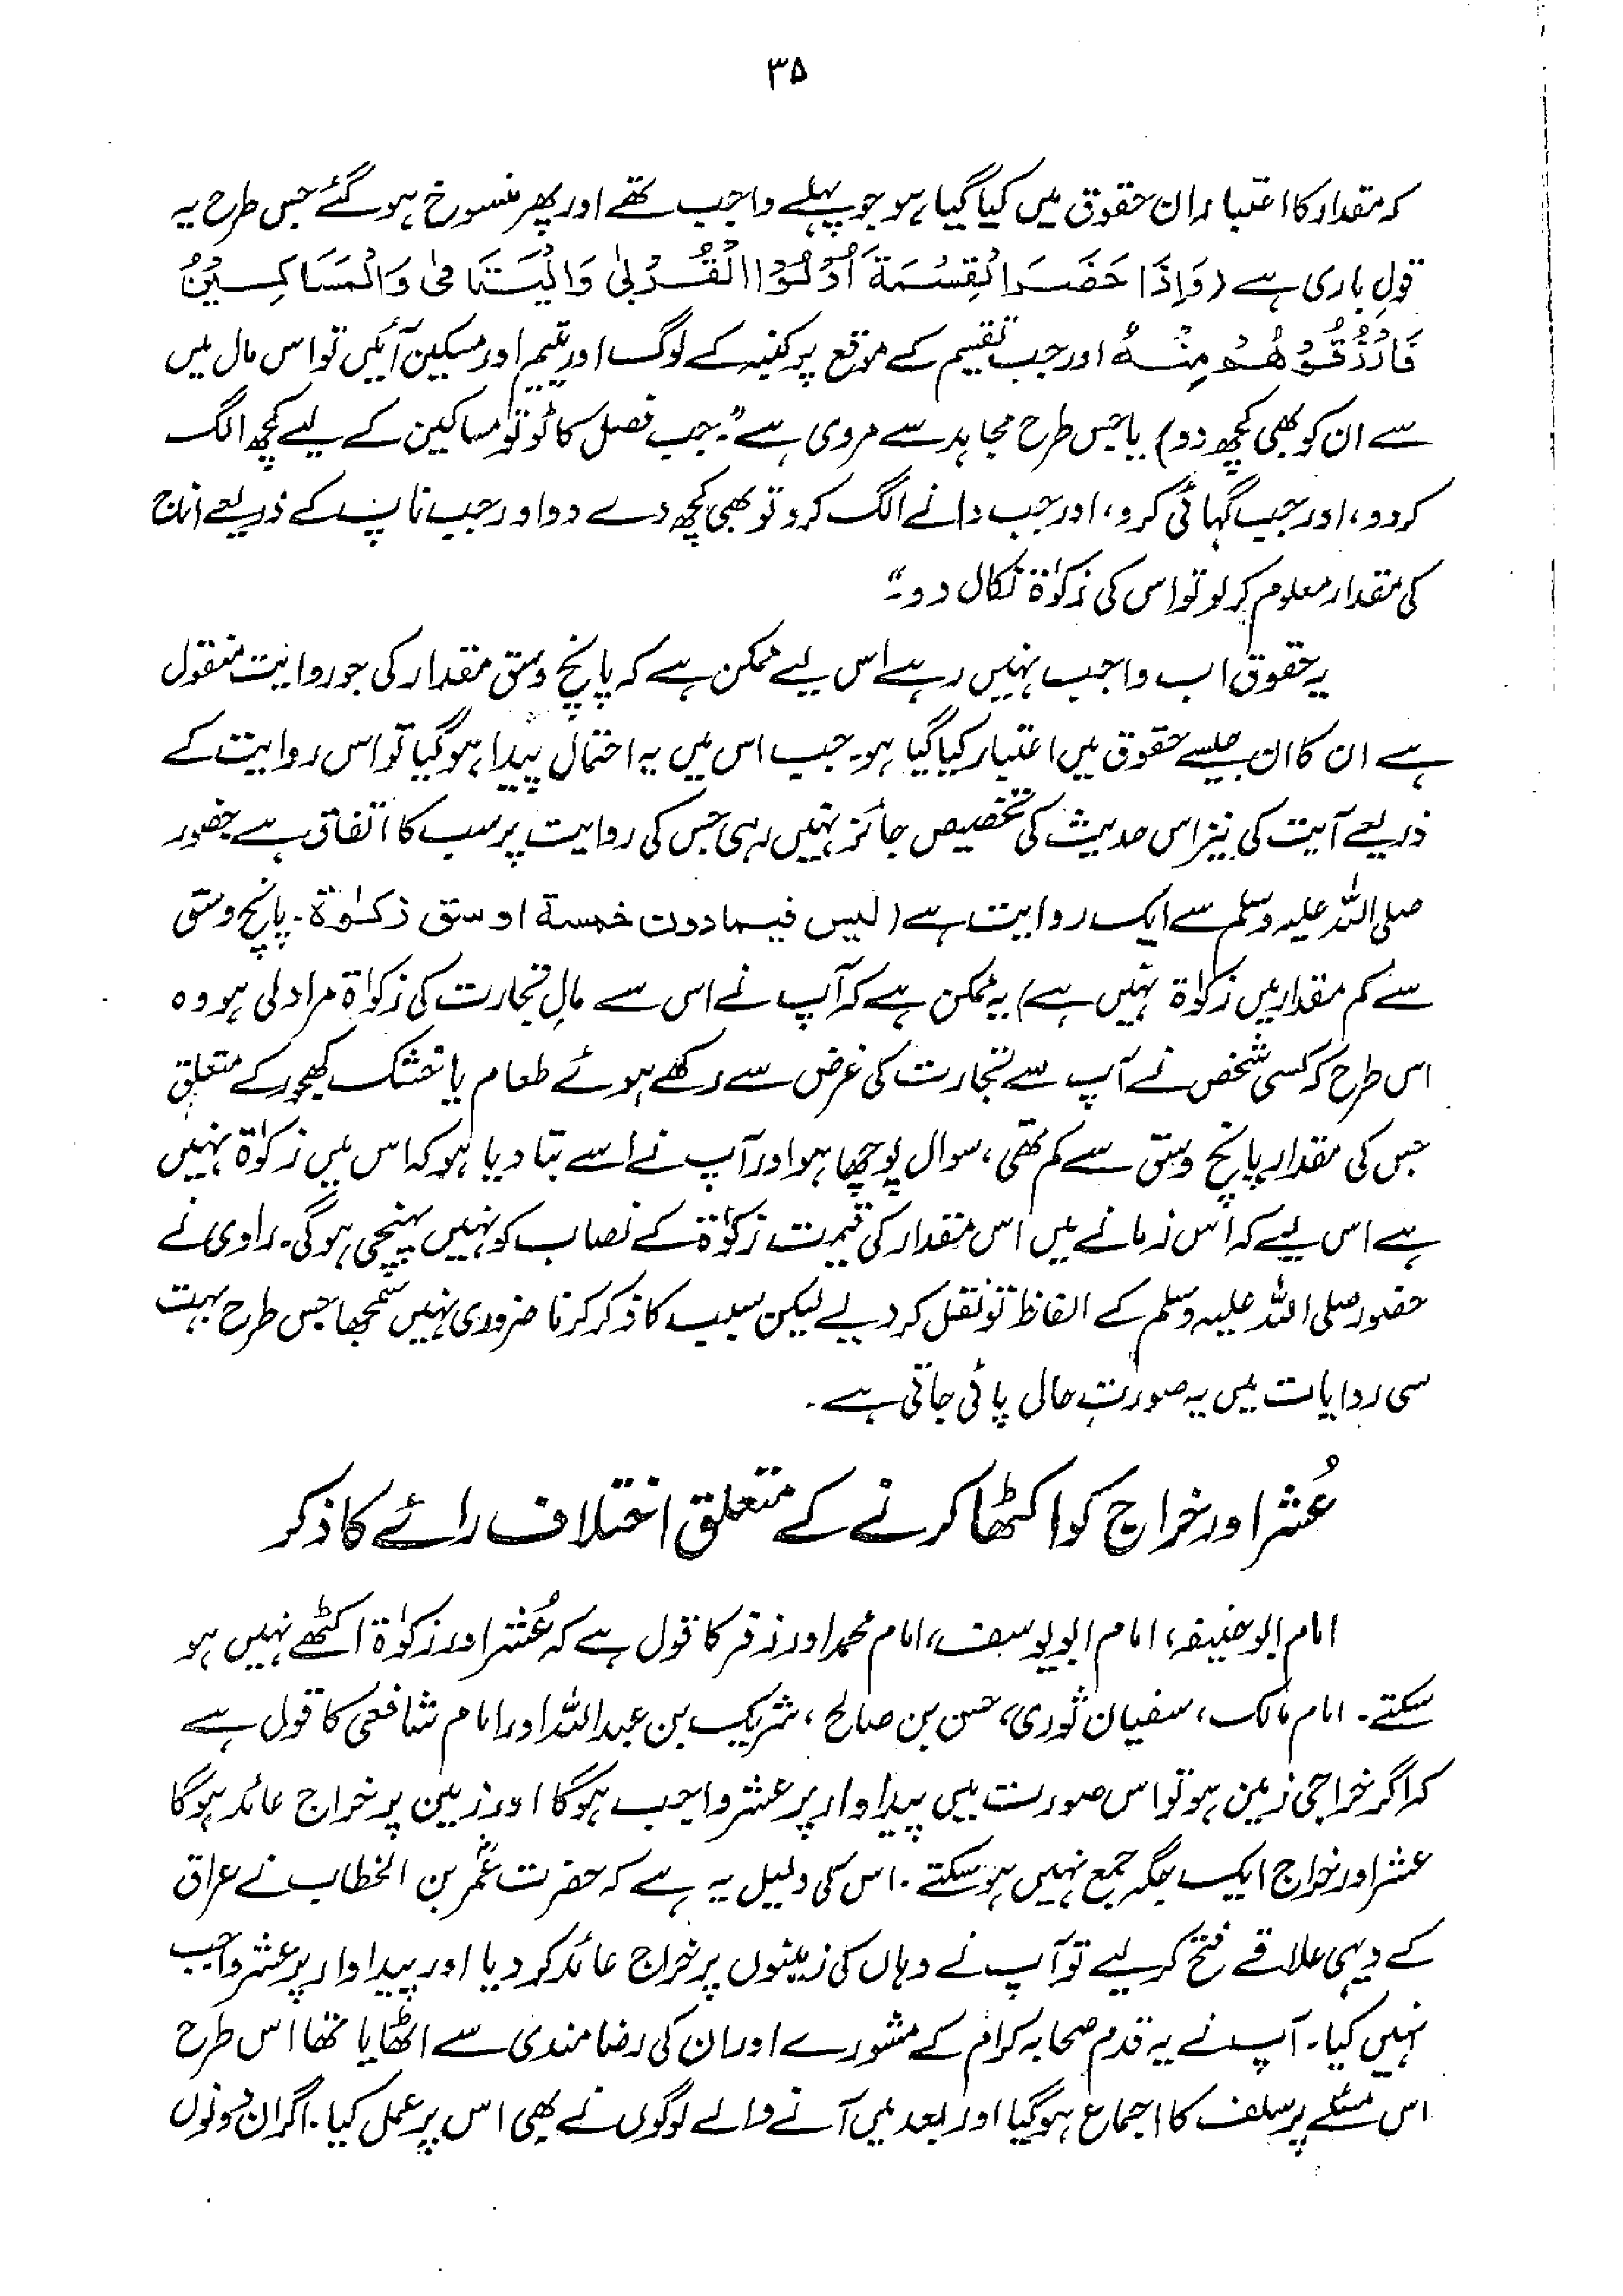 ۳۵
کہ مقدار کا اعتبار ان حقوق میں کیا گیا ہو جو پہلے واجب تھے اور پھر منسوخ ہو گئے جس طرح یہ
قولِ باری ہے (وَاِذَا حَضَرَ الْقِسْمَةَ اُولُوا الْقُرْبٰی وَالْیَتَامٰی وَالْمَسَاکِیْنُ
فَارْزُقُوْهُمْ مِنْهُ اور جب تقسیم کے موقع پر کنبہ کے لوگ اور یتیم اور مسکین آئیں تو اس مال میں
سے ان کو بھی کچھ دو) یا جس طرح مجاہد سے مروی ہے "۔ جب فصل کاٹو تو مساکین کے لیے کچھ الگ
کر دو، اور جب گہائی کرو، اور جب دانے الگ کرو تو بھی کچھ دے دو اور جب ناپ کے ذریعے اناج
کی مقدار معلوم کر لو تو اس کی زکوٰۃ نکال دو۔"
یہ حقوق اب واجب نہیں رہے اس لیے ممکن ہے کہ پانچ وسق مقدار کی جو روایت منقول
ہے ان کا ان جیسے حقوق میں اعتبار کیا گیا ہو۔ جب اس میں یہ احتمال پیدا ہو گیا تو اس روایت کے
ذریعے آیت کی نیز اس حدیث کی تخصیص جائز نہیں رہی جس کی روایت پر سب کا اتفاق ہے حضور
صلی اللہ علیہ وسلم سے ایک روایت ہے (لیس فیما دون خمسة اوسق زکوٰة۔ پانچ وسق
سے کم مقدار میں زکوٰۃ نہیں ہے) یہ ممکن ہے کہ آپ نے اس سے مالِ تجارت کی زکوٰۃ مراد لی ہو وہ
اس طرح کہ کسی شخص نے آپ سے تجارت کی غرض سے رکھے ہوئے طعام یا خشک کھجور کے متعلق
جس کی مقدار پانچ وسق سے کم تھی، سوال پوچھا ہو اور آپ نے اسے بتا دیا ہو کہ اس میں زکوٰۃ نہیں
ہے اس لیے کہ اُس زمانے میں اس مقدار کی قیمت زکوٰۃ کے نصاب کو نہیں پہنچی ہو گی۔ راوی نے
حضور صلی اللہ علیہ وسلم کے الفاظ تو نقل کر دیے لیکن سبب کا ذکر کرنا ضروری نہیں سمجھا جس طرح بہت
سی روایات میں یہ صورتِ حال پائی جاتی ہے۔
عُشر اور خراج کو اکٹھا کرنے کے متعلق اختلاف رائے کا ذکر
امام ابو حنیفہ، امام ابو یوسف، امام محمد اور زفر کا قول ہے کہ عُشر اور زکوٰۃ اکٹھے نہیں ہو
سکتے۔ امام مالک، سفیان ثوری، حسن بن صالح، شریک بن عبداللہ اور امام شافعی کا قول ہے
کہ اگر خراجی زمین ہو تو اس صورت میں پیداوار پر عشر واجب ہو گا اور زمین پر خراج عائد ہو گا
عشر اور خراج ایک جگہ جمع نہیں ہو سکتے۔ اس کی دلیل یہ ہے کہ حضرت عمرؓ بن الخطاب نے عراق
کے دیہی علاقے فتح کر لیے تو آپ نے وہاں کی زمینوں پر خراج عائد کر دیا اور پیداوار پر عشر واجب
نہیں کیا۔ آپ نے یہ قدم صحابہ کرام کے مشورے اور ان کی رضامندی سے اٹھایا تھا اس طرح
اس مسئلے پر سلف کا اجماع ہو گیا اور بعد میں آنے والے لوگوں نے بھی اس پر عمل کیا۔ اگر ان دونوں